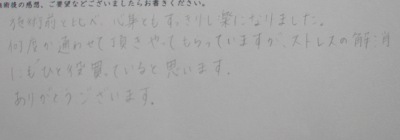 術後の感想、ご要望などございましたらお書きください。
施術前と比べ、心身ともすっきりし楽になりました。
何度か通わせて頂きやってもらっていますが、ストレスの解消
にもひと役買っていると思います。
ありがとうございます。